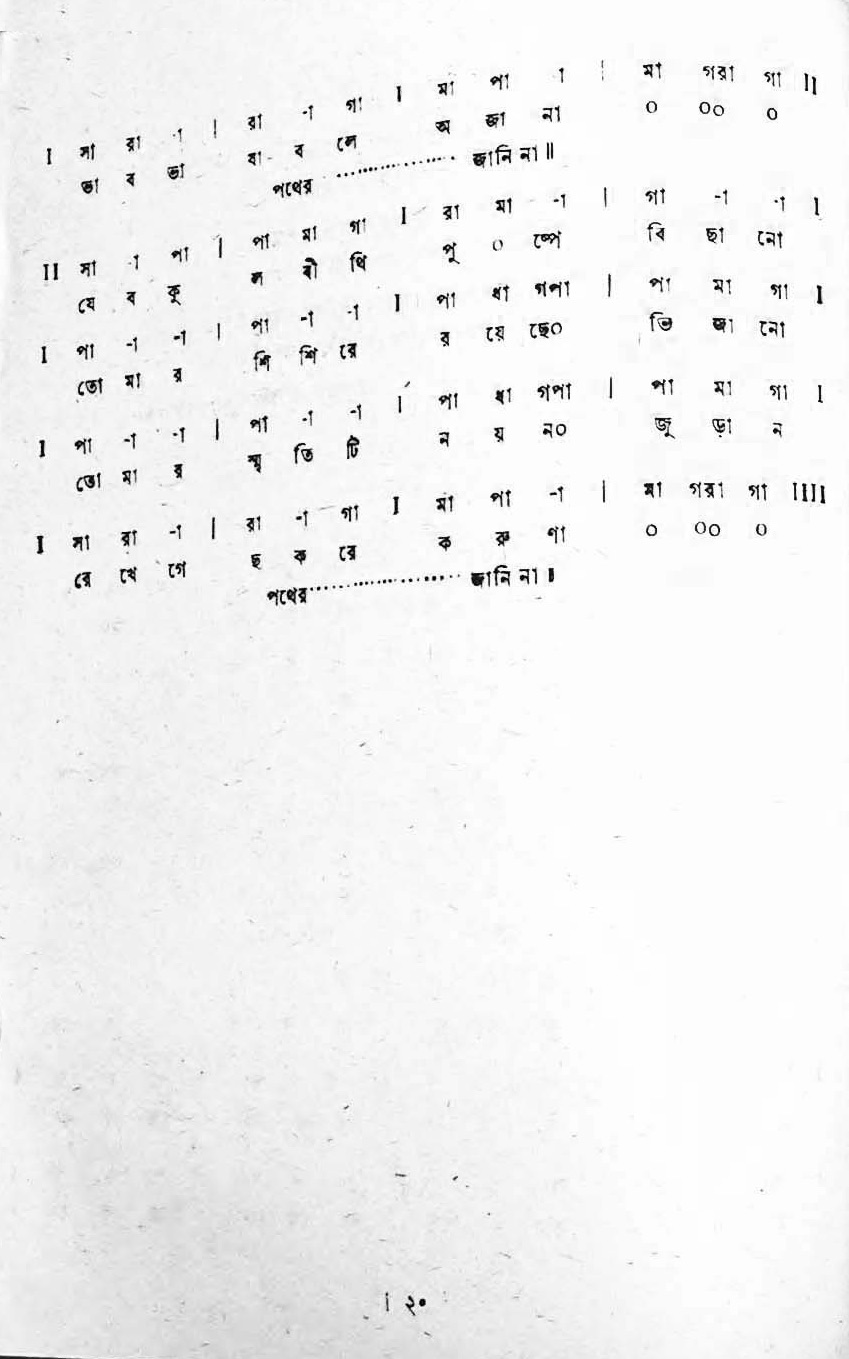 I সা রা -া | রা -া গা I মা পা -া | মা গরা গা II
ভা ব ভা বা ব লে অ জা না ০ ০০ ০
পথের ...................... জানি না॥
II সা -া পা | পা মা গা I রা মা -া | গা -া -া I
যে ব কু ল বী থি পু ০ ষ্পে বি ছা নো
I পা -া -া | পা -া -া I পা ধা গপা | পা মা গা I
তো মা র শি শি রে র য়ে ছে০ ভি জা নো
I পা -া -া | পা -া -া I পা ধা গপা | পা মা গা I
তো মা র স্মৃ তি টি ন য় ন০ জু ড়া ন
I সা রা -া | রা -া গা I মা পা -া | মা গরা গা IIII
রে খে গে ছ ক রে ক রু ণা ০ ০০ ০
পথের ........................ জানি না॥
| ২০